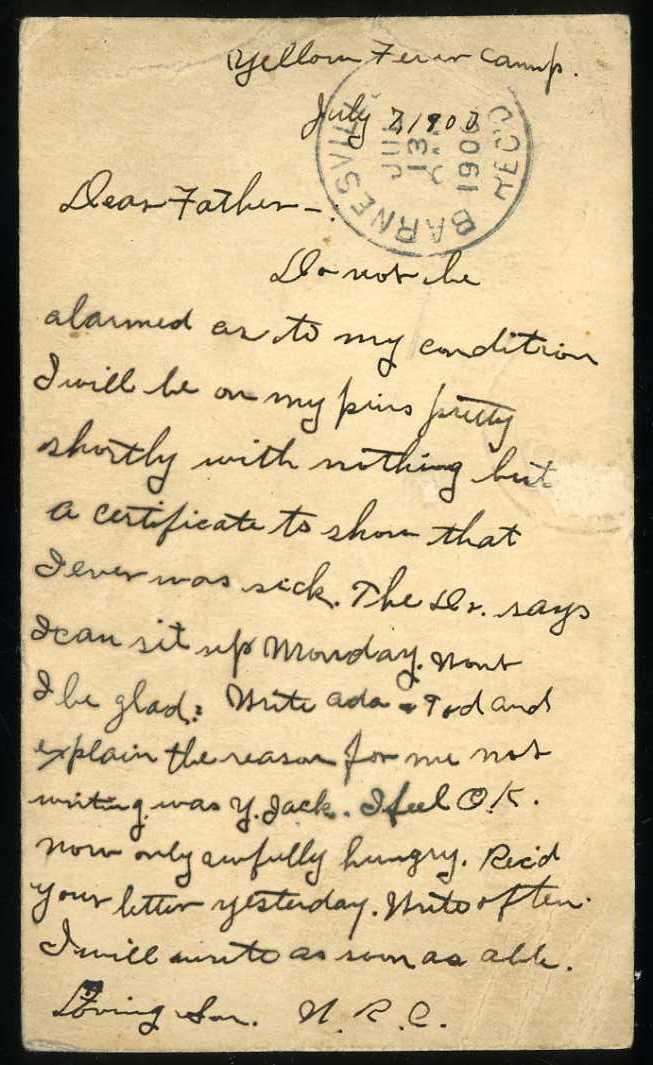 Yellow Fever Camp.
July 7 1900
BARNESVILLE
JUL
13
1900
REC'D
Dear Father -
Do not be
alarmed as to my condition
I will be on my pins pretty
shortly with nothing but
a certificate to show that
I ever was sick. The Dr. says
I can sit up Monday. Wont
I be glad: Write Ada & Tod and
explain the reason for me not
writing was Y. Jack. I feel O.K.
now only awfully hungry. Rec'd
your letter yesterday. Write often.
I will write as soon as able.
Loving Son. N. R. C.